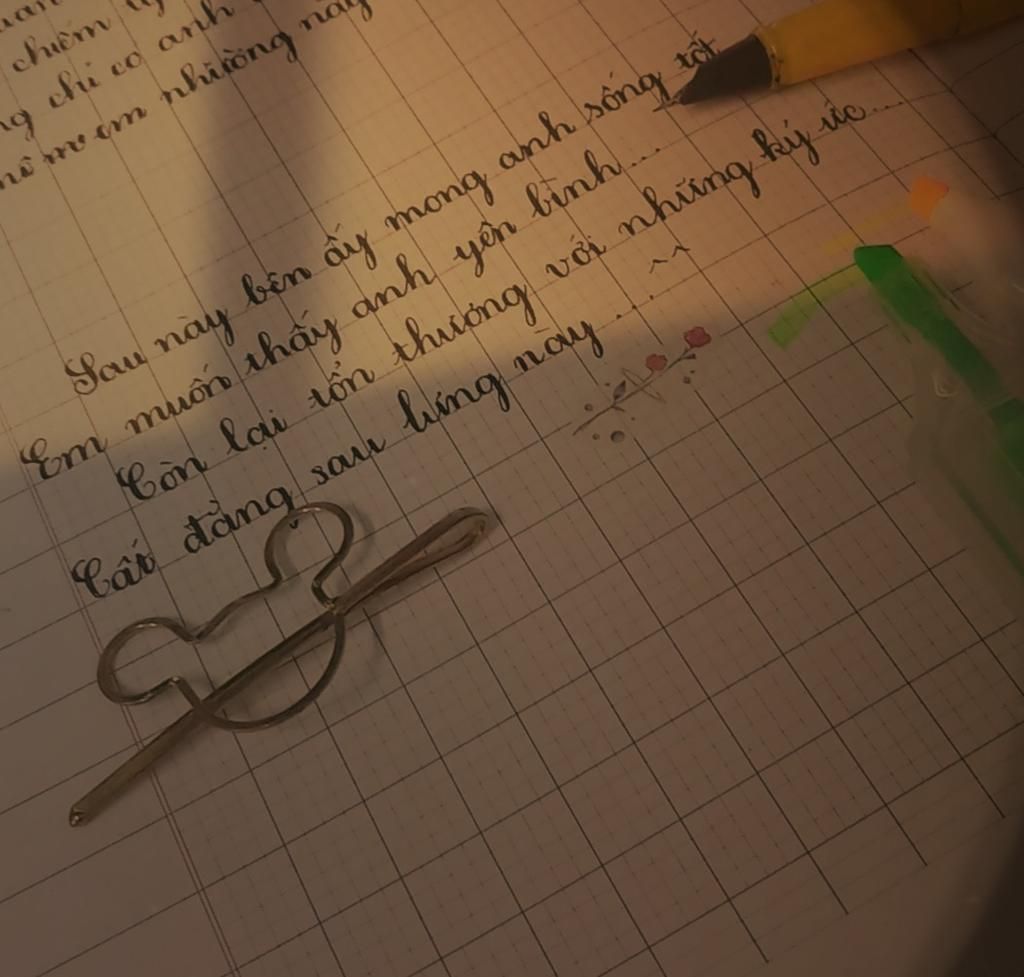 chiếm
chỉ có anh
em nhường này
Sau này bên ấy mong anh sống tốt
Em muốn thấy anh yên bình...
Còn lại tổn thương với những ký ức...
Cất đằng sau lưng này... ^^